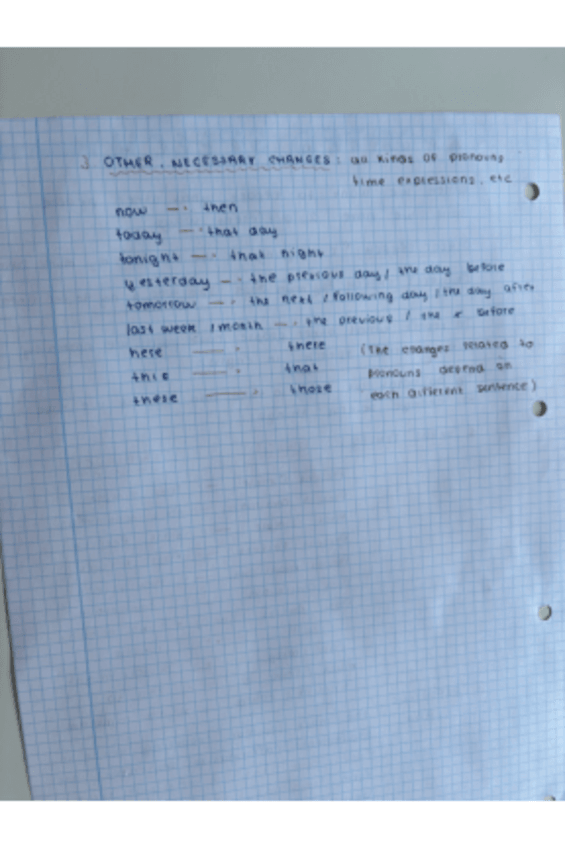 ) OTHER NECESSARY CHANGES: all kinds of pronouns,
time expressions, etc
now —· then
today —· that day
tonight —· that night
yesterday —· the previous day / the day before
tomorrow —· the next / following day / the day after
last week / month —· the previous / the before
here —· there (The changes related to
this —· that pronouns depend on
these —· those each different sentence)